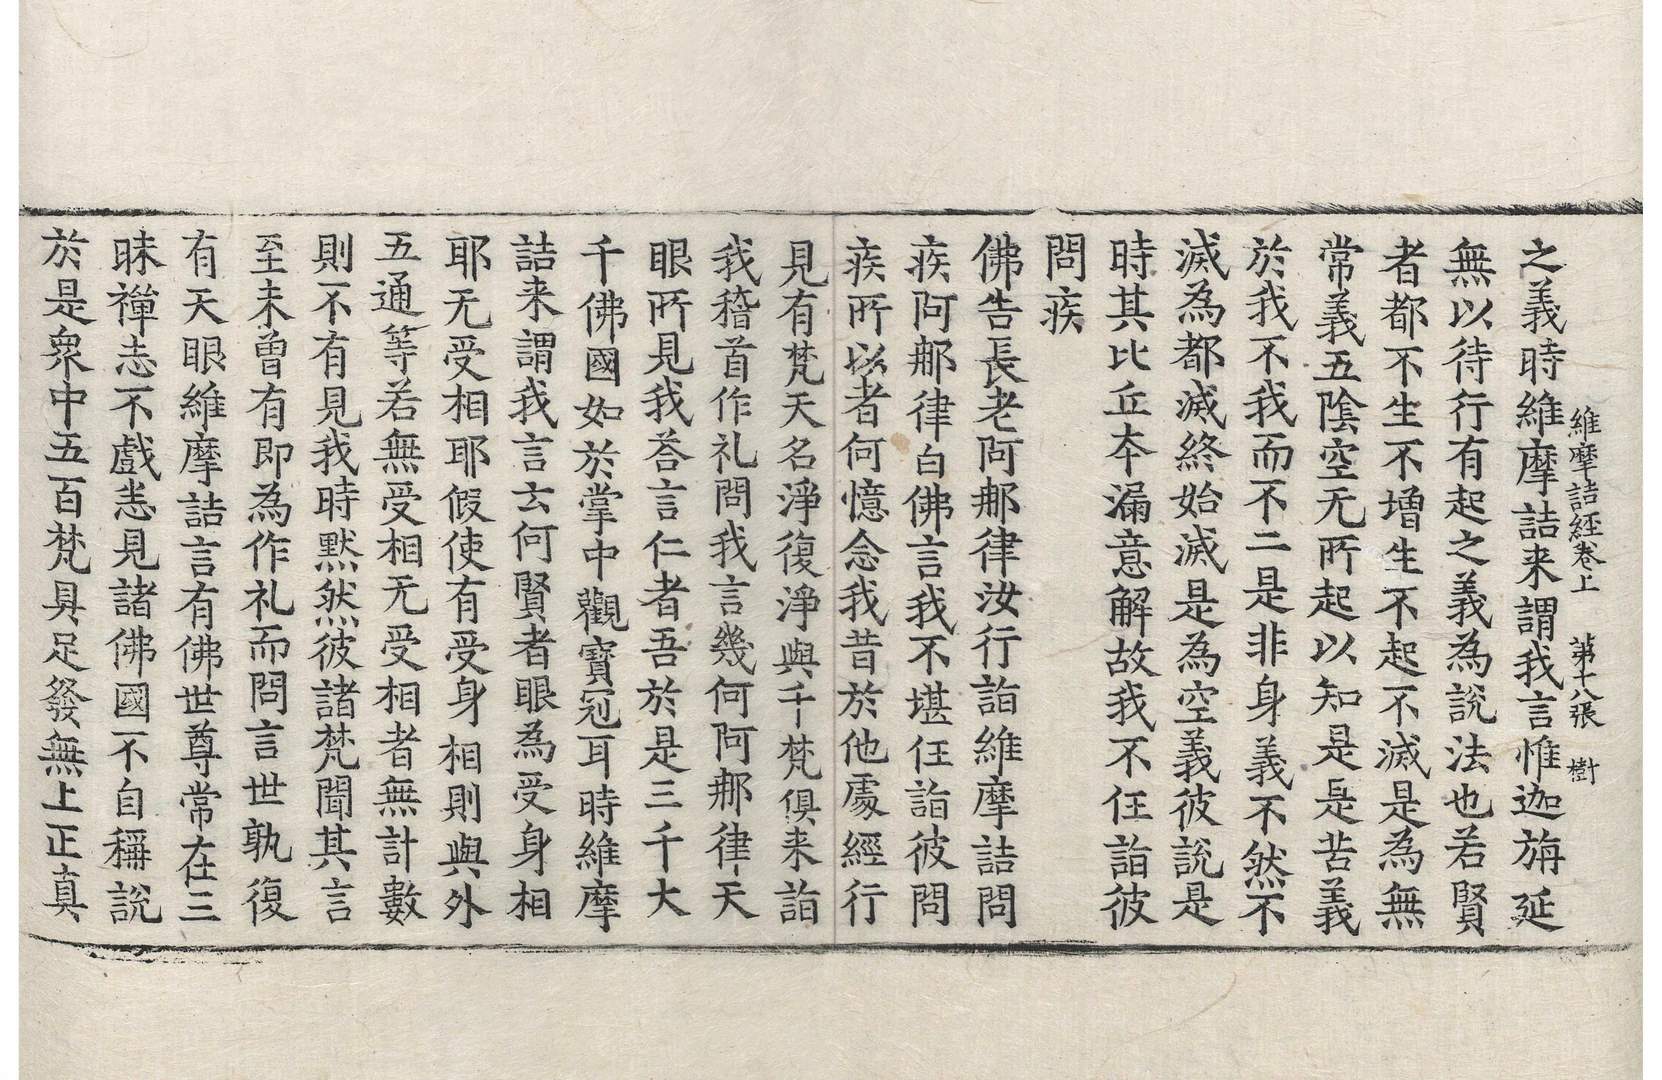 維摩詰經卷上　第十八張　樹
之義時維摩詰来謂我言惟迦旃延
無以待行有起之義為說法也若賢
者都不生不増生不起不滅是為無
常義五陰空无所起以知是是苦義
於我不我而不二是非身義不然不
滅為都滅終始滅是為空義彼說是
時其比丘夲漏意解故我不任詣彼
問疾
佛告長老阿那律汝行詣維摩詰問
疾阿那律白佛言我不堪任詣彼問
疾所以者何憶念我昔於他處經行
見有梵天名淨復淨與千梵俱来詣
我稽首作礼問我言幾何阿那律天
眼所見我荅言仁者吾於是三千大
千佛國如於掌中觀寶冠耳時維摩
詰来謂我言云何賢者眼為受身相
耶无受相耶假使有受身相則與外
五通等若無受相无受相者無計數
則不有見我時默然彼諸梵聞其言
至未曾有即為作礼而問言世孰復
有天眼維摩詰言有佛世尊常在三
昧禪志不戲恚見諸佛國不自稱說
於是衆中五百梵具足發無上正真